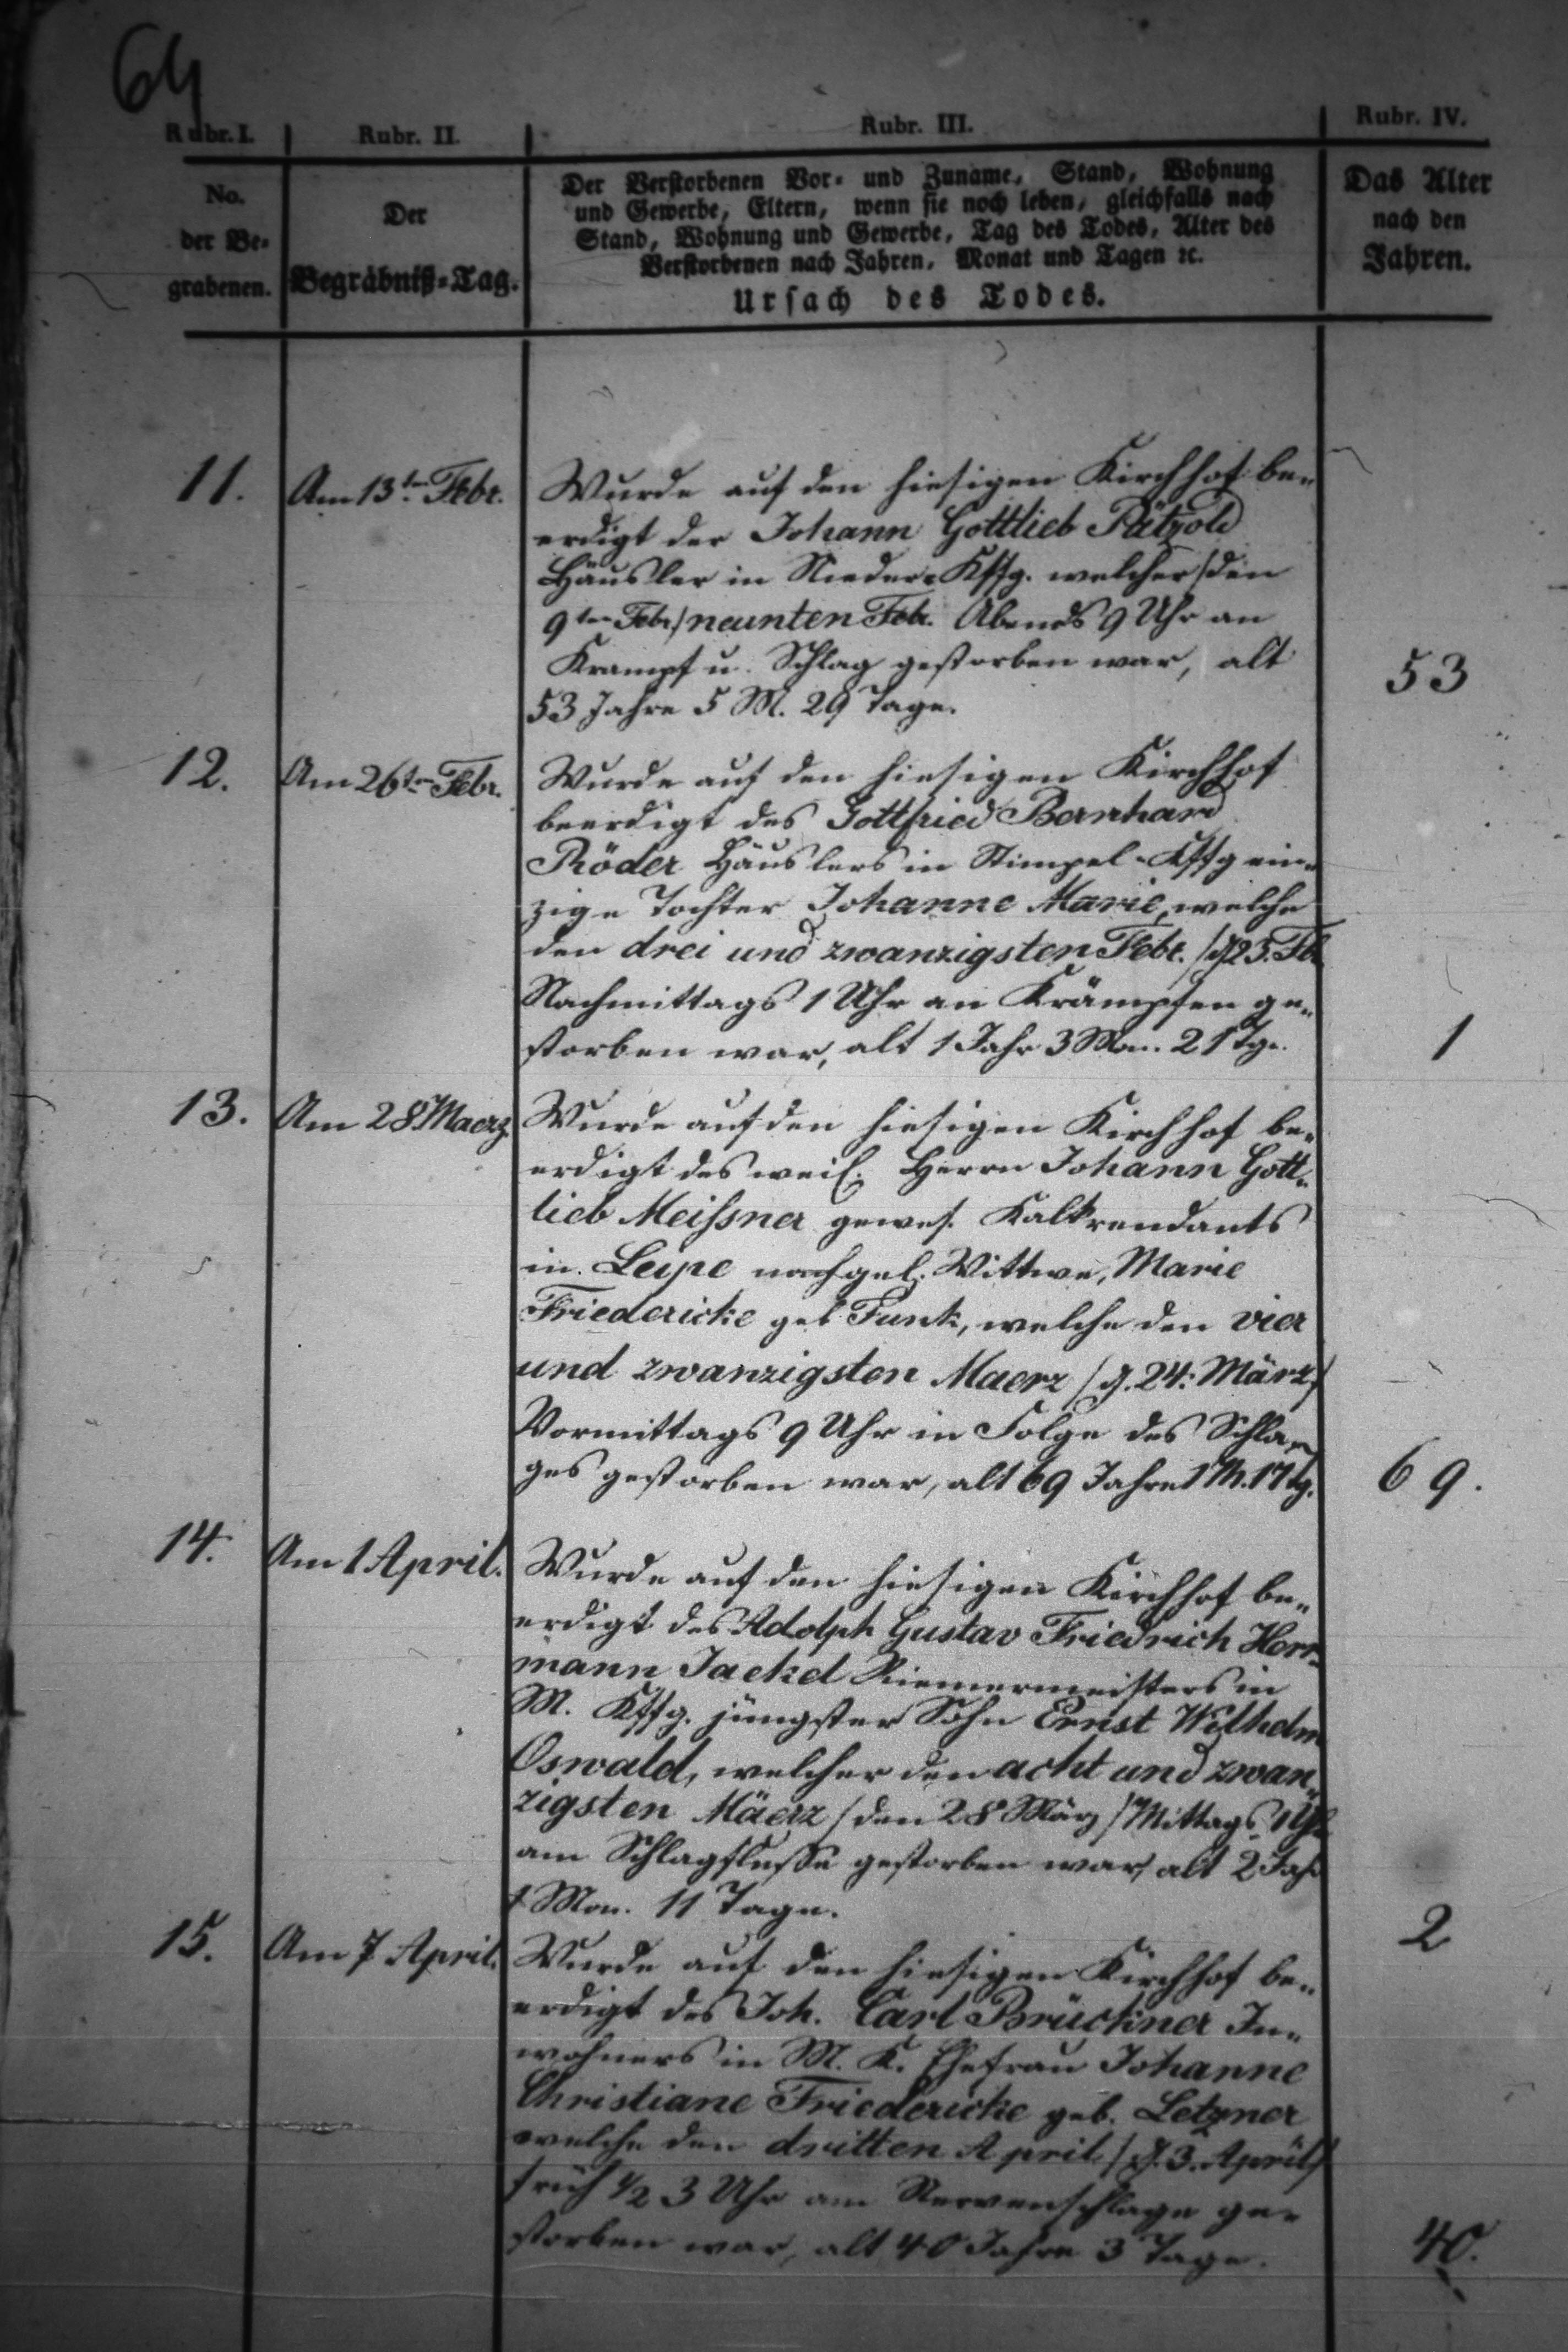 64
Rubr. I. Rubr. II. Rubr. III. Rubr. IV.
No.
der Be-
grabenen.
Der
Begräbniß-Tag.
Der Verstorbenen Vor- und Zuname, Stand, Wohnung
und Gewerbe, Eltern, wenn sie noch leben, gleichfalls nach
Stand, Wohnung und Gewerbe, Tag des Todes, Alter des
Verstorbenen nach Jahren, Monat und Tagen ꝛc.
Ursach des Todes.
Das Alter
nach den
Jahren.
11. Am 13ten Febr. Wurde auf den hiesigen Kirchhof be-
erdigt der Johann Gottlieb Pätzold
Häusler in Nieder-Kffg. welcher /den
9ten Febr/ neunten Febr. Abends 9 Uhr an
Krampf u. Schlag gestorben war, alt
53 Jahre 5 M. 29 Tage. 53
12. Am 26ten Febr. Wurde auf den hiesigen Kirchhof
beerdigt des Gottfried Bernhard
Röder Häuslers in Stimpel-Kffg ein-
zige Tochter Johanne Marie, welche
den drei und zwanzigsten Febr. /d 23. Fb.
Nachmittags 1 Uhr an Krämpfen ge-
storben war, alt 1 Jahr 3 Mon. 21 Tge. 1
13. Am 28 Maerz Wurde auf den hiesigen Kirchhof be-
erdigt des weil. Herrn Johann Gott-
lieb Meissner gewes. Kalkrendants
in Leipe nachgel. Wittwe, Marie
Friedericke geb Funk, welche den vier
und zwanzigsten Maerz /d. 24. März/
Vormittags 9 Uhr in Folge des Schla-
ges gestorben war, alt 69 Jahre 1 M. 17 tg. 69.
14. Am 1 April. Wurde auf den hiesigen Kirchhof be-
erdigt des Adolph Gustav Friedrich Herr-
mann Jaekel Riemermeisters in
M. Kffg. jüngster Sohn Ernst Wilhelm
Oswald, welcher den acht und zwan-
zigsten Mäerz /den 28 März/ Mittags 1 Uhr
am Schlagflusse gestorben war, alt 2 Jahr
1 Mon. 11 Tage. 2
15. Am 7 April. Wurde auf den hiesigen Kirchhof be-
erdigt des Joh. Carl Brückner In-
wohners in M. K. Ehefrau Johanne
Christiane Friedericke geb. Letzner
welche den dritten April /d. 3. April/
früh ½ 3 Uhr am Nervenschlage ge-
storben war, alt 40 Jahre 3 Tage. 40.